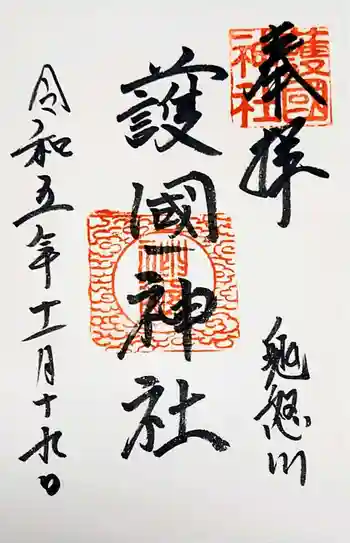 奉拝
護國
神社
鬼怒川
護國神社
令和五年十一月十九日